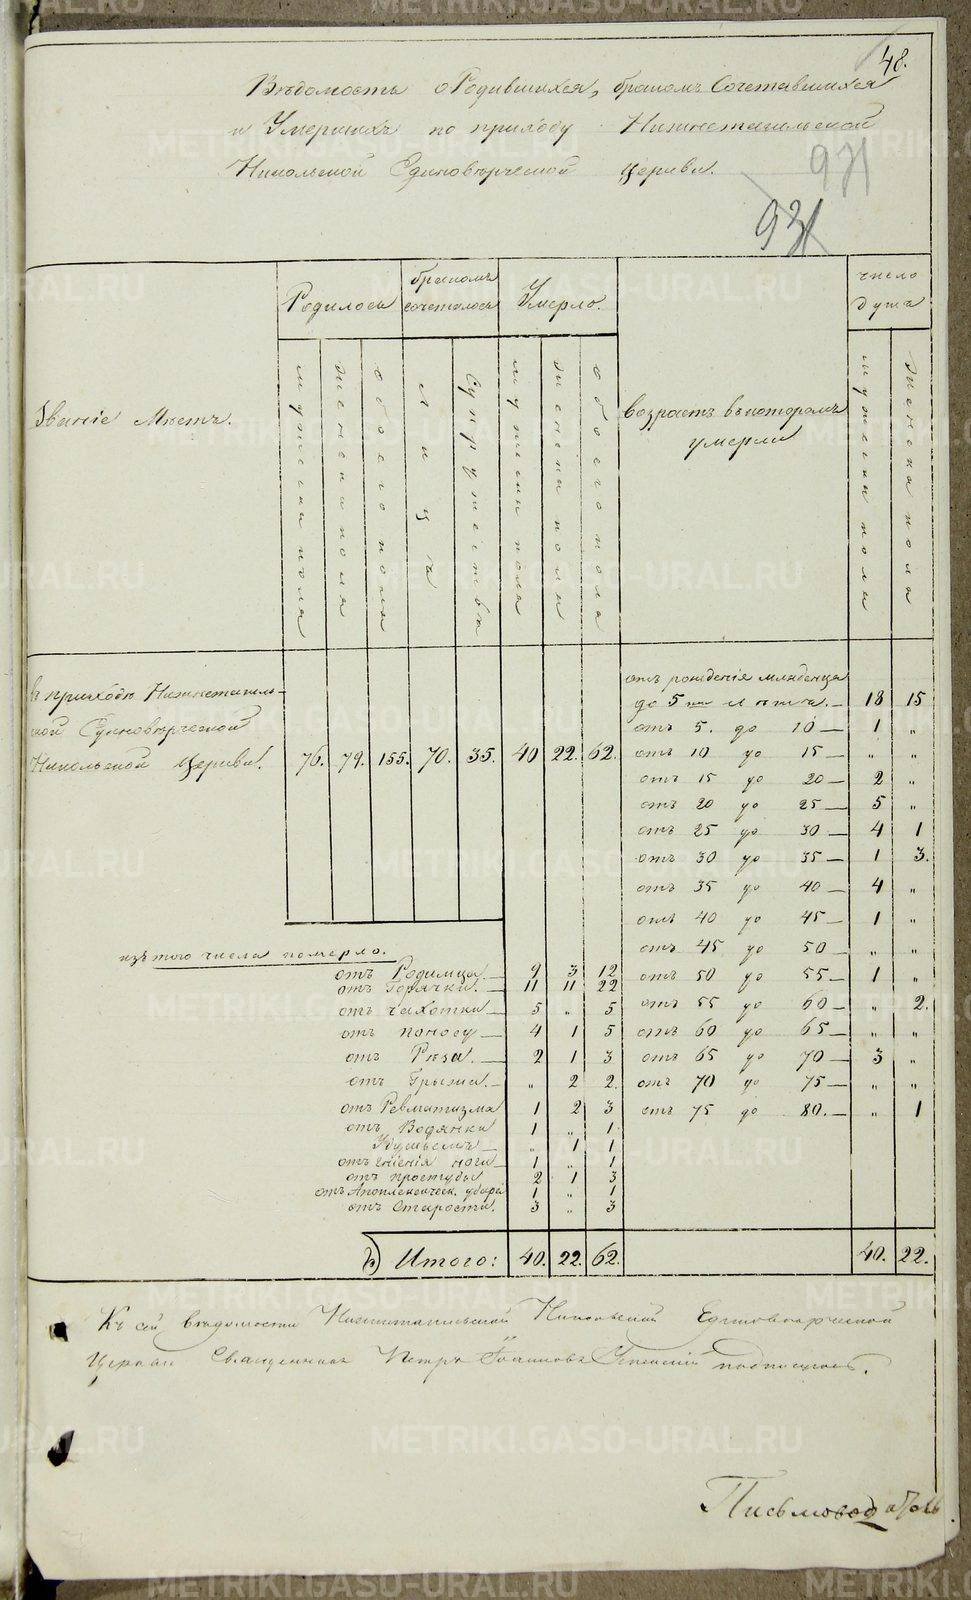 48.
Вѣдомость о Родившихся, бракомъ Сочетавшихся
и Умершихъ по приходу Нижнетагильской
Никольской Единовѣрческой Церкви.
931
931
Званіе Мѣстъ.
Родилось
бракомъ сочеталось
Умерло.
возрастъ въ которомъ умерли
число душъ
мужеска пола
женска пола
обоего пола
лицъ
супружествъ
мужеска пола
женска пола
обоего пола
мужеска пола
женска пола
въ приходѣ Нижнетагиль-
ской Единовѣрческой
Никольской Церкви. 76. 79. 155. 70. 35. 40 22. 62.
отъ рожденія младенца
до 5 ти лѣтъ. 18 15
отъ 5. до 10 — 1 „
отъ 10 до 15 — „ „
отъ 15 до 20 — 2 „
отъ 20 до 25 — 5 „
отъ 25 до 30 — 4 1
отъ 30 до 35 — 1 3.
отъ 35 до 40 — 4 „
отъ 40 до 45 — 1 „
отъ 45 до 50 — „ „
отъ 50 до 55 — 1 „
отъ 55 до 60 — „ 2.
отъ 60 до 65 — „ „
отъ 65 до 70 — 3 „
отъ 70 до 75 — „ „
отъ 75 до 80. — „ 1
изъ того числа померло.
отъ Родимца. — 9 3 12
отъ Горячки. — 11 11 22
отъ чахотки — 5 „ 5
отъ поносу — 4 1 5
отъ Рѣза. — 2 1 3
отъ Грыжи. — „ 2 2.
отъ Ревматизма 1 2 3
отъ Водянки 1 „ 1
Удушьемъ — „ 1 1
отъ гніенія ноги — 1 „ 1
отъ простуды 2 1 3
отъ Апоплексическ. удара 1 „ 1
отъ Старости. 3 „ 3
Итого: 40. 22. 62. 40. 22.
Къ сей вѣдомости Нижнетагильской Никольской Единовѣрческой
Церкви Священникъ Петръ Іоанновъ подписался.
Письмоводитель
METRIKI.GASO-URAL.RU